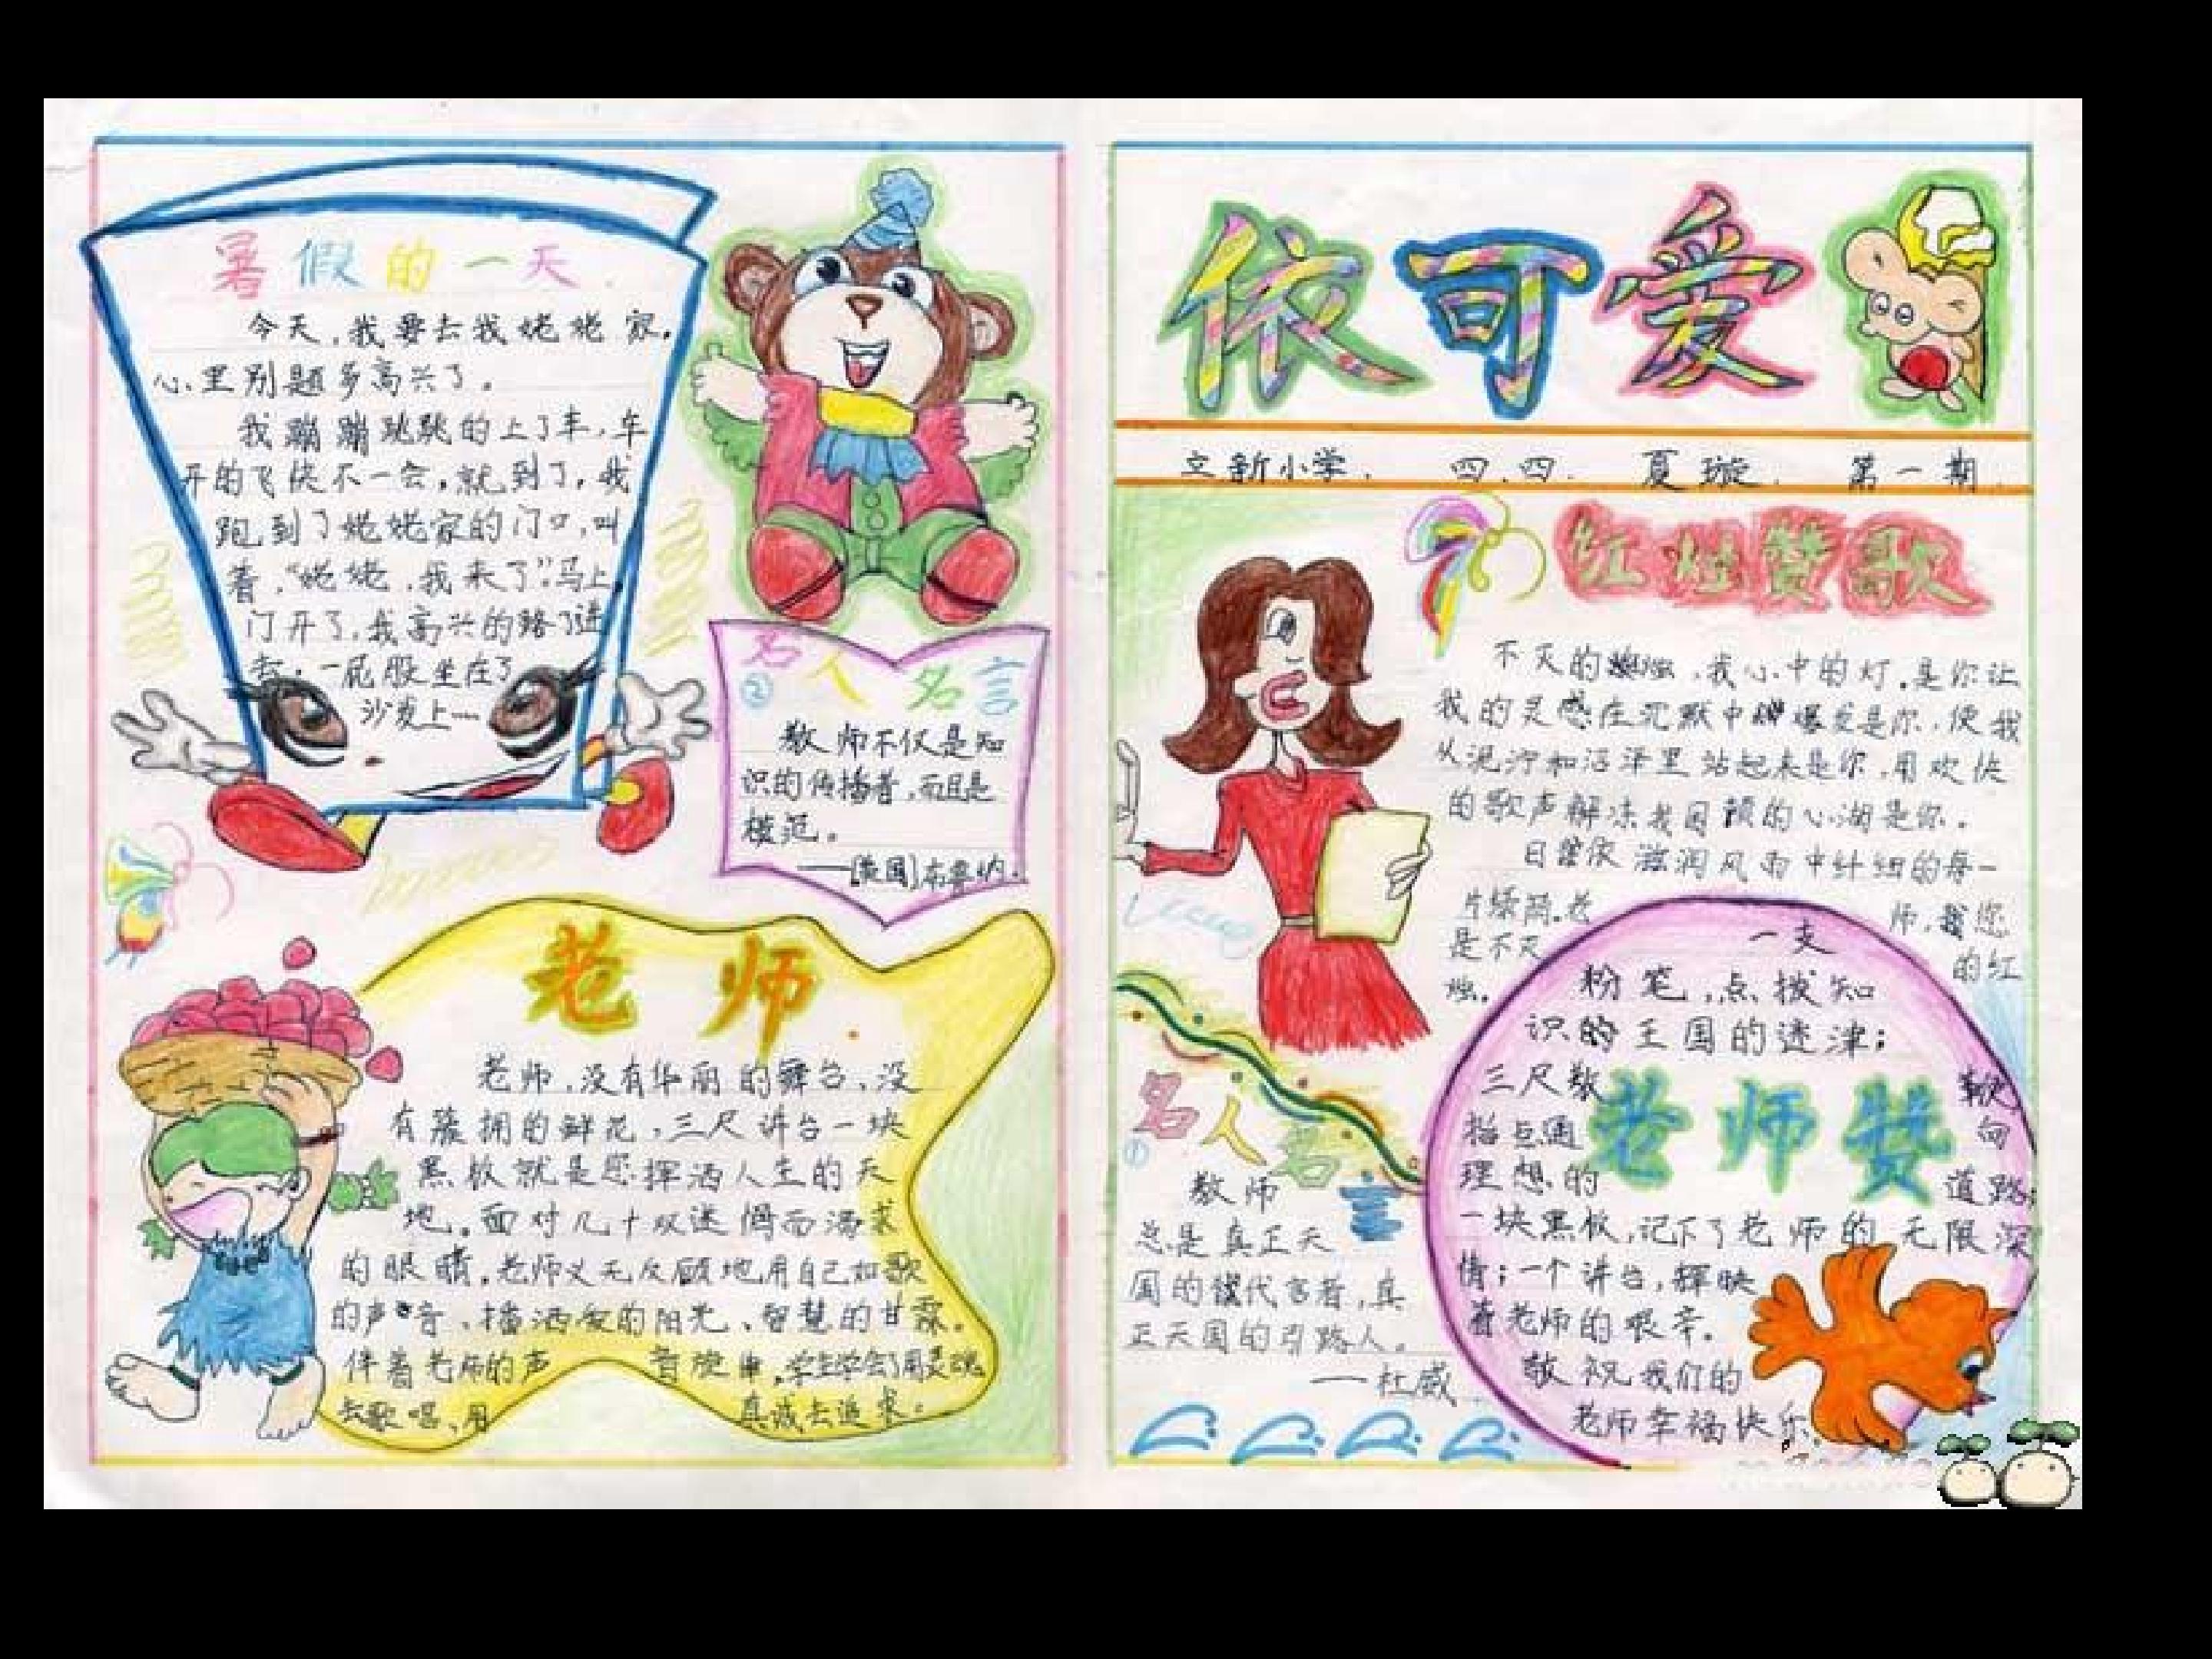 暑假的一天
今天,我要去我姥姥家,
心里别题多高兴了。
我蹦蹦跳跳的上了车,车
开的飞快不一会,就到了,我
跑到了姥姥家的门口,叫
着,“姥姥,我来了”.马上,
门开了,我高兴的路了进
去,一屁股坐在了
沙发上……
名人名言
②
教师不仅是知
识的传播者,而且是
模范。
——[美国]布鲁纳.
老师
老师,没有华丽的舞台,没
有簇拥的鲜花,三尺讲台一块
黑板就是您挥洒人生的天
地。面对几十双迷惘而渴求
的眼睛。老师义无反顾地用自己如歌
的声音、播洒爱的阳光、智慧的甘霖。
伴着老师的声音旋律,学生学会了用灵魂
去歌唱、用真诚去追求:
依可爱
立新小学. 四.四. 夏璇. 第一期.
红烛赞歌
不灭的,我心中的灯.是你让
我的灵感在沉默中爆发是你,使我
从泥泞和沼泽里站起来是你,用欢快
的歌声解冻我因顿的心湖是你。
日曾依滋润风雨中纤细的每一
片绿荫.老师,我您
是不灭的红
烛。
名人名言
①
教师
总是真正天
国的代言者,真
正天国的引路人。
——杜威
老师赞
一支
粉笔,点拨知
识的王国的迷津;
三尺教鞭
指点通向
理想的道路;
一块黑板,记下了老师的无限深
情;一个讲台,辉映
着老师的艰辛.
敬祝我们的
老师幸福快乐.